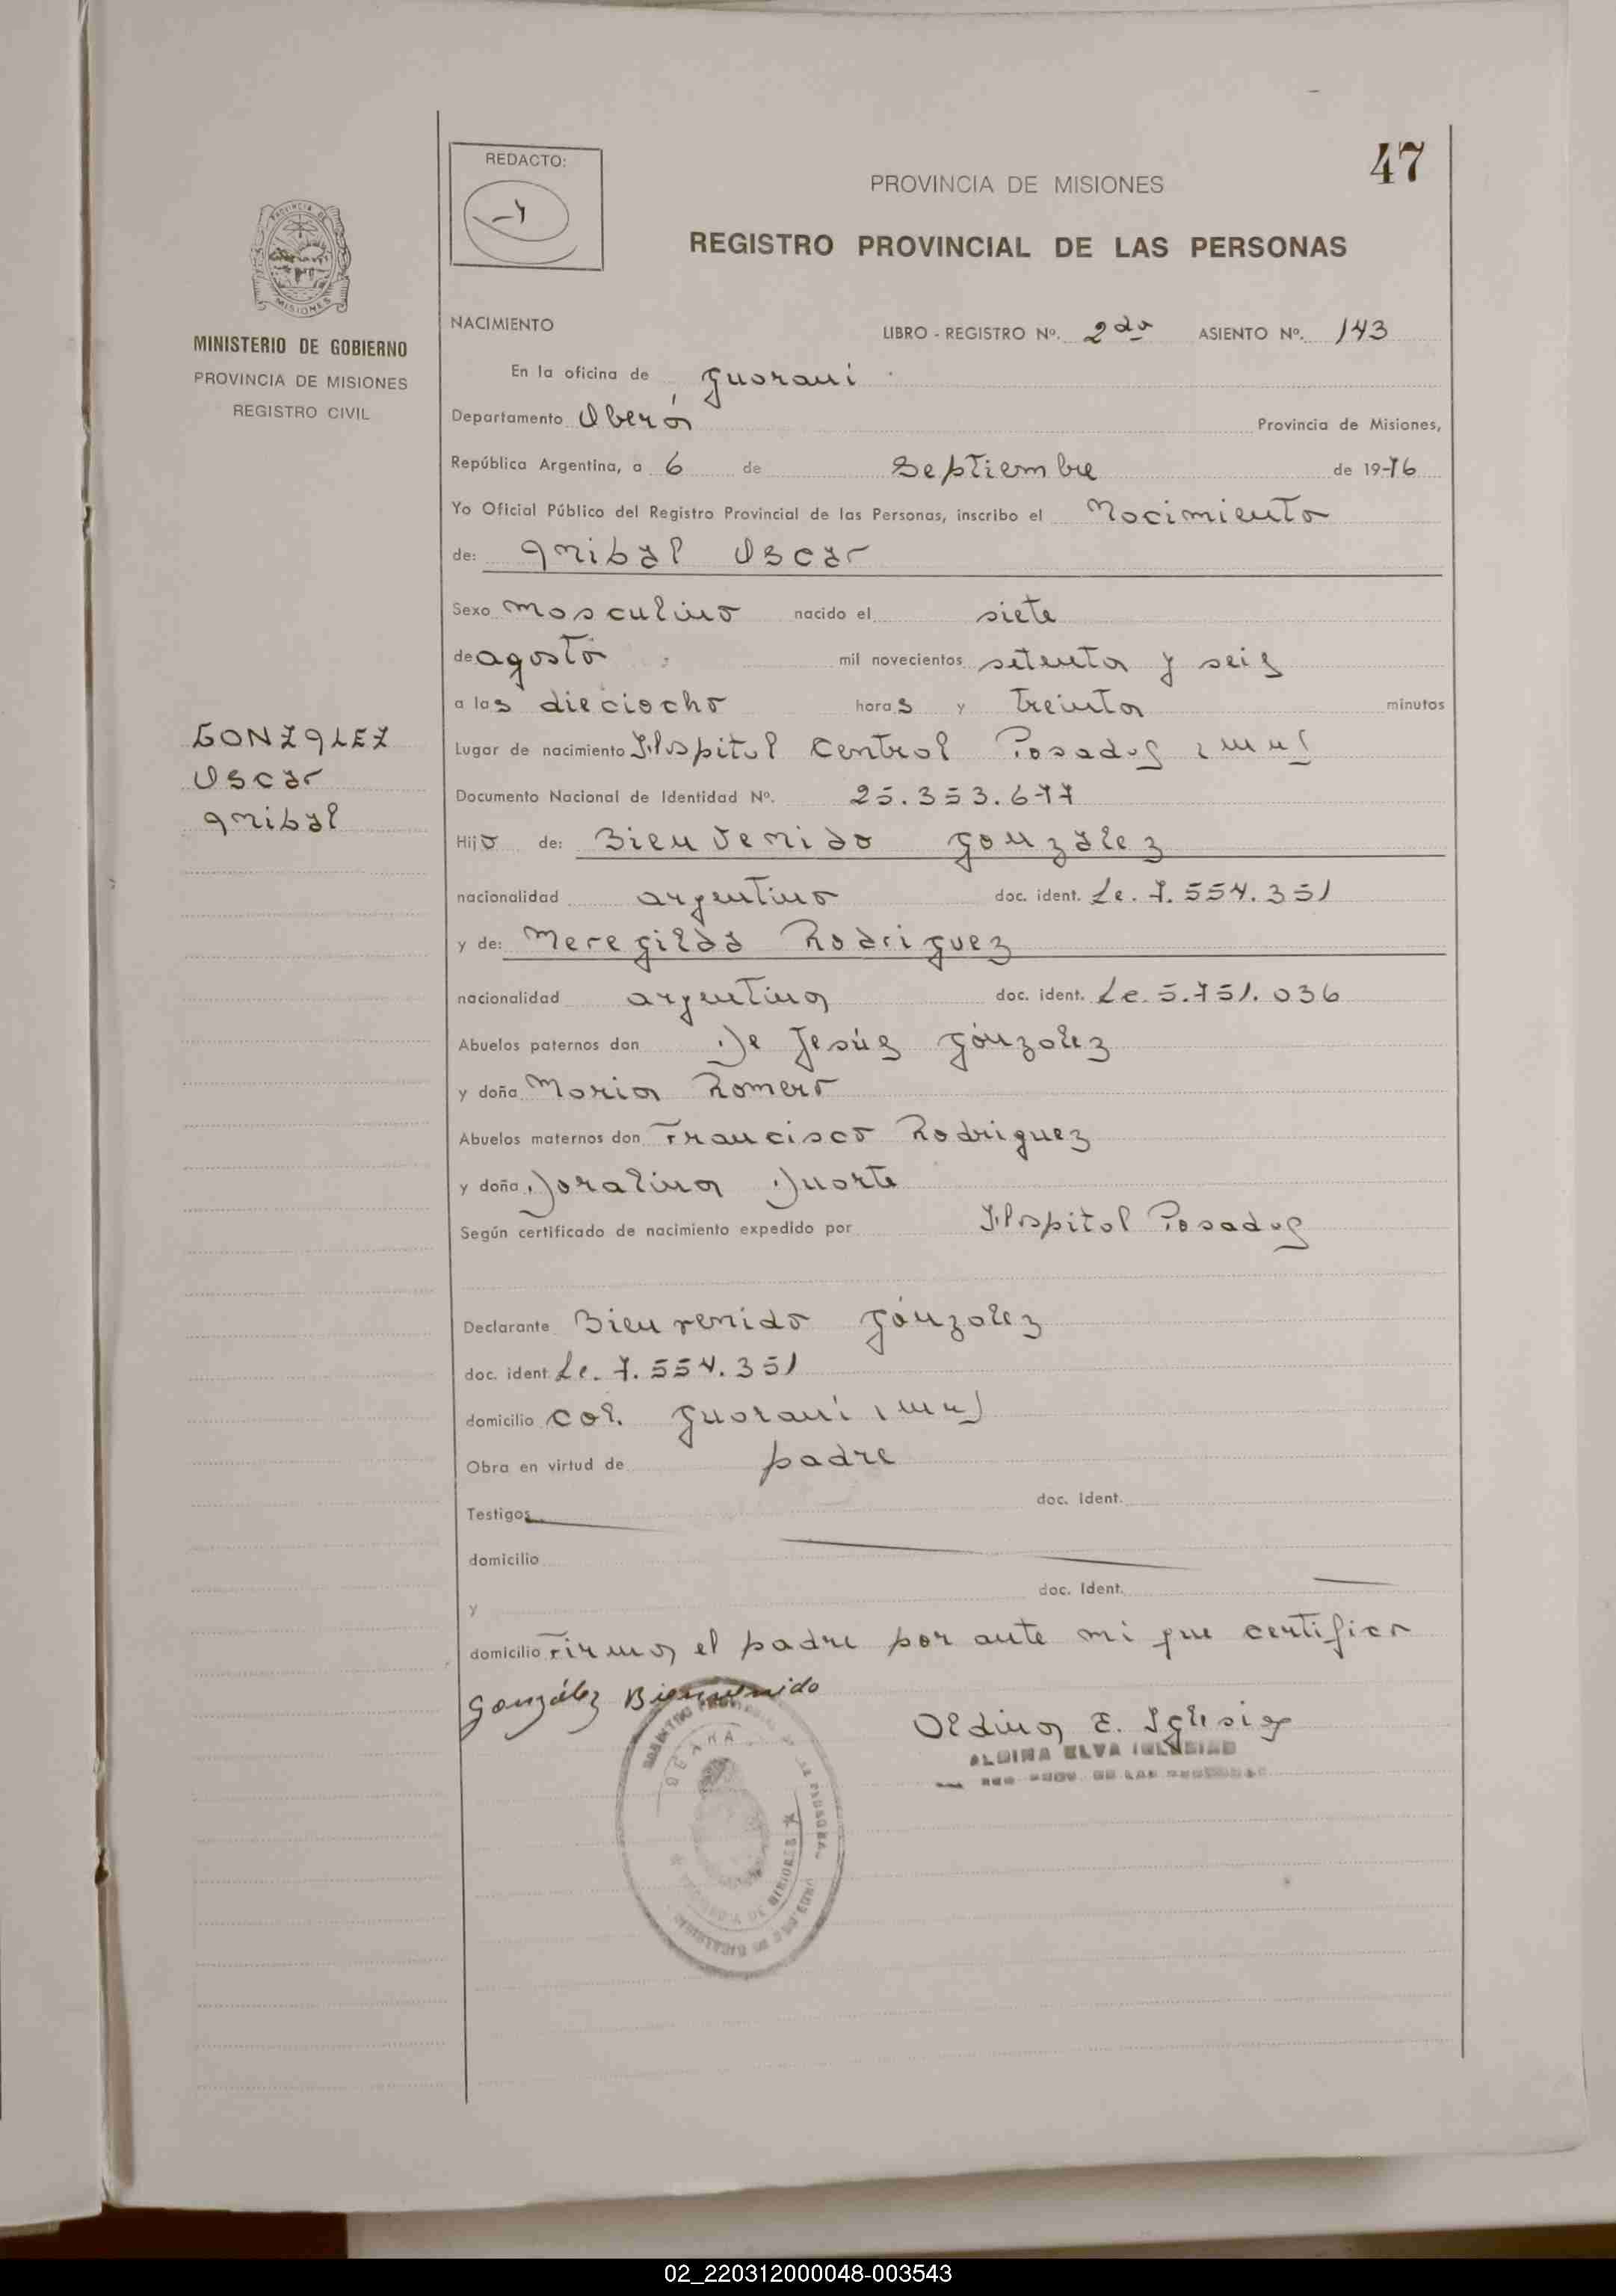 47
REDACTO:
PROVINCIA DE MISIONES
REGISTRO PROVINCIAL DE LAS PERSONAS
PROVINCIA DE
MISIONES
MINISTERIO DE GOBIERNO
PROVINCIA DE MISIONES
REGISTRO CIVIL
GONZALEZ
Oscar
Anibal
NACIMIENTO
LIBRO - REGISTRO Nº. 2do ASIENTO Nº. 143
En la oficina de Guarani
Departamento Oberá Provincia de Misiones,
República Argentina, a 6 de Septiembre de 1976
Yo Oficial Público del Registro Provincial de las Personas, inscribo el Nacimiento
de: Anibal Oscar
Sexo Masculino nacido el siete
de agosto mil novecientos setenta y seis
a las dieciocho horas y treinta minutos
Lugar de nacimiento Hospital Central Posadas (Mns)
Documento Nacional de Identidad Nº. 25.353.677
Hijo de: Bienvenido González
nacionalidad argentino doc. ident. Le. 7.554.351
y de: Meregilda Rodriguez
nacionalidad argentina doc. ident. Lc. 5.751.036
Abuelos paternos don De Jesús Gónzalez
y doña Maria Romero
Abuelos maternos don Francisco Rodriguez
y doña Doralina Duarte
Según certificado de nacimiento expedido por Hospital Posadas
Declarante Bienvenido Gónzalez
doc. ident. Le. 7.554.351
domicilio Col. Guarani (Mns)
Obra en virtud de padre
Testigos doc. Ident.
domicilio
y doc. Ident.
domicilio Firma el padre por ante mi que certifico
González Bienvenido
Aldina E. Iglesias
ALDINA ELVA IGLESIAS
02_220312000048-003543